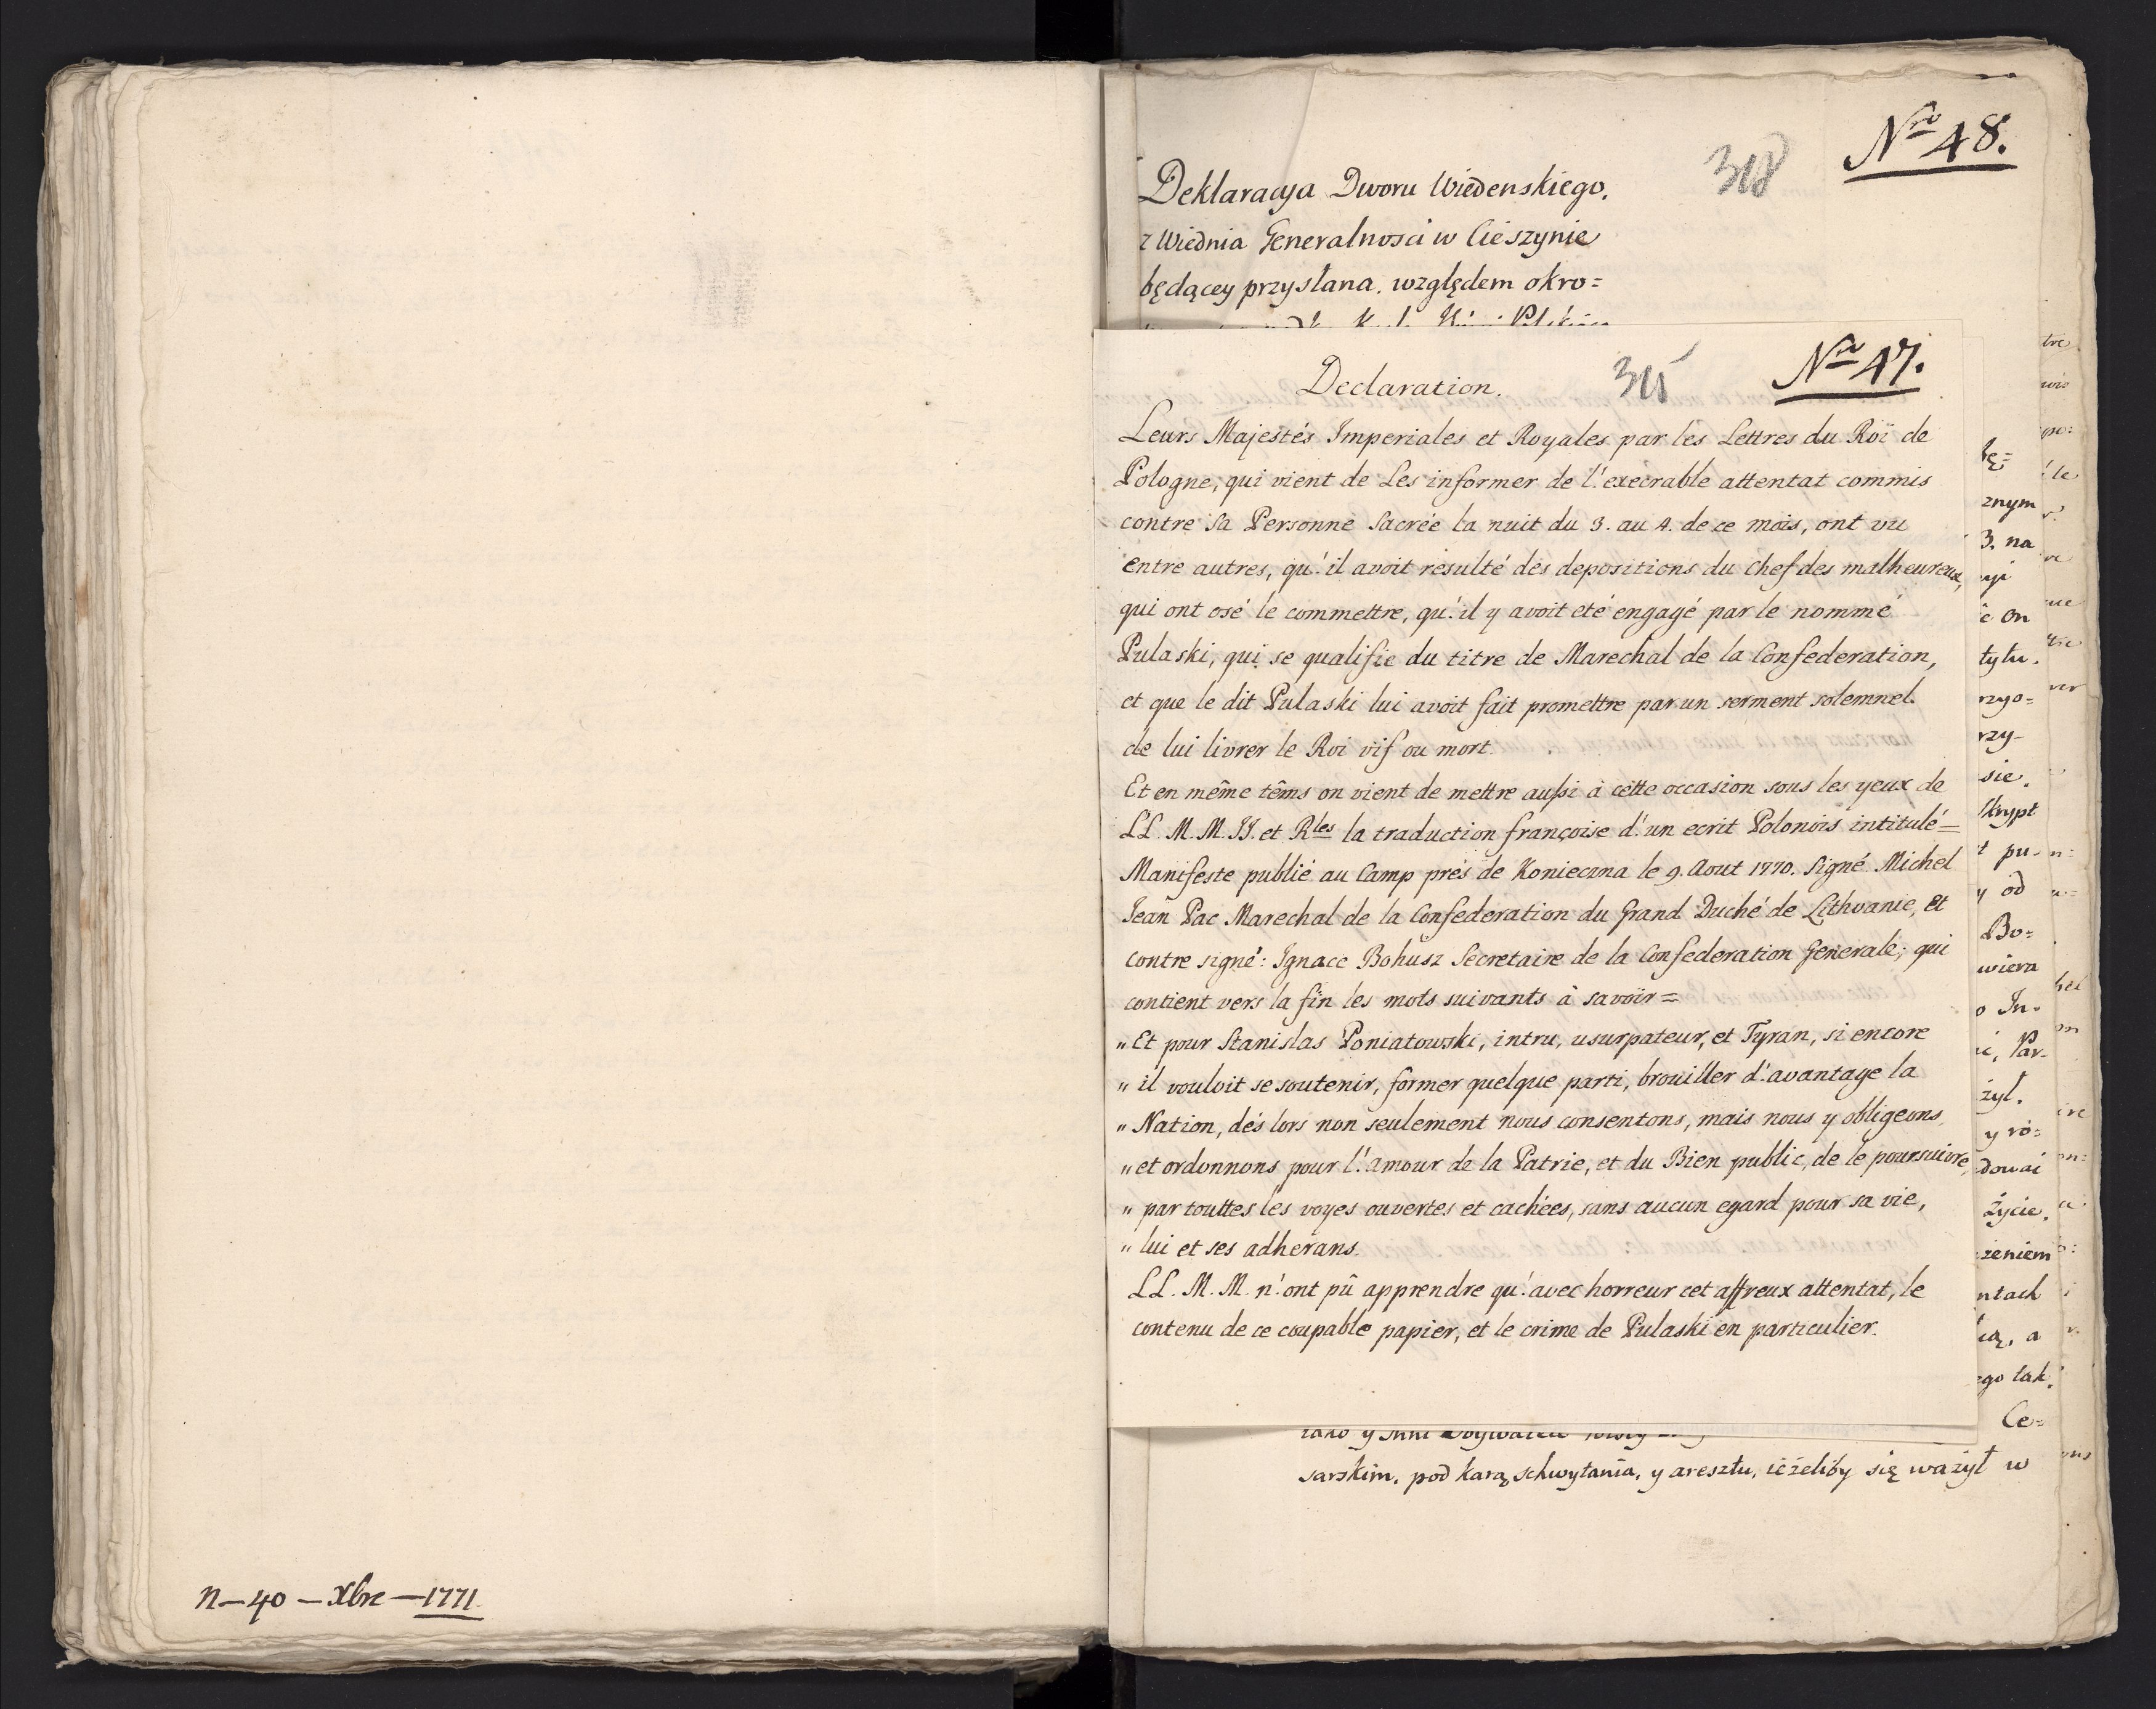 n—40—Xbre—1771.
Nro 48.
318
Deklaracya Dworu Wiedenskiego.
z Wiednia Generalnosci w Cieszynie
będącey przysłana. względem okro=
Nro 47.
315
Declaration.
Leurs Majestés Imperiales et Royales par les Lettres du Roi de
Pologne, qui vient de Les informer de l'execrable attentat commis
contre sa Personne Sacrée la nuit du 3. au 4. de ce mois, ont vu
entre autres, qu'il avoit resulté des depositions du chef des malheureux,
qui ont osé le commettre, qu'il y avoit eté engagé par le nommé
Pulaski, qui se qualifie du titre de Marechal de la Confederation,
et que le dit Pulaski lui avoit fait promettre par un serment solemnel
de lui livrer le Roi vif ou mort.
Et en même têms on vient de mettre aussi à cette occasion sous les yeux de
LL. M. M. II. et Rles la traduction françoise d'un ecrit Polonois intitulé=
Manifeste publié au Camp près de Konieczna le 9. Aout 1770. Signé Michel
Jean Pac Marechal de la Confederation du Grand Duché de Lithvanie, et
contre signé: Ignace Bohusz Secretaire de la Confederation Generale; qui
contient vers la fin les mots suivants à savoir=
„ Et pour Stanislas Poniatowski, intru, usurpateur, et Tyran, si encore
„ il vouloit se soutenir, former quelque parti, brouiller d'avantage la
„ Nation, dès lors non seulement nous consentons, mais nous y obligeons,
„ et ordonnons pour l'amour de la Patrie, et du Bien public, de le poursuivre,
„ par touttes les voyes ouvertes et cachées, sans aucun egard pour sa vie,
„ lui et ses adherans.
LL. M. M. n'ont pû apprendre qu'avec horreur cet affreux attentat, le
contenu de ce coupable papier, et le crime de Pulaski en particulier.
bę=
znym
3. na
on
tytu.
rzyo=
rzy-
sie.
skrypt
pu-
y od
Bo=
wiera
o In-
Par-
żył.
y ro=
dowai
życie.
żeniem
ntach
a
ego tak
Ce=
sarskim, pod karą schwytania, y aresztu, ieżeliby się ważył w